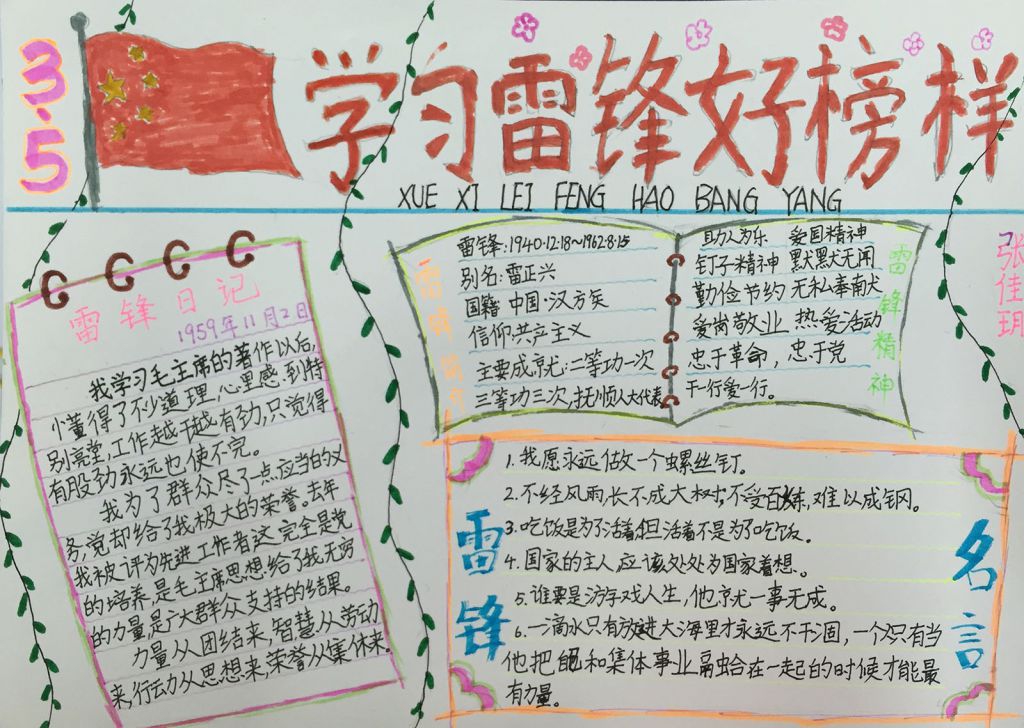 3.5
学习雷锋好榜样
XUE XI LEI FENG HAO BANG YANG
张佳玥
雷锋日记
1959年11月2日
我学习毛主席的著作以后,
懂得了不少道理,心里感到特
别亮堂,工作越干越有劲,只觉得
有股劲永远也使不完。
我为了群众尽了一点应当的义
务,党却给了我极大的荣誉。去年
我被评为先进工作者这完全是党
的培养,是毛主席思想给了我无穷
的力量,是广大群众支持的结果。
力量从团结来,智慧从劳动
来,行动从思想来,荣誉从集体来。
雷锋简介
雷锋:1940·12·18~1962·8·15
别名:雷正兴
国籍 中国·汉方族
信仰共产主义
主要成就:二等功一次
三等功三次,抚顺人大代表
助人为乐 爱国精神
钉子精神 默默无闻
勤俭节约 无私奉南犬
爱岗敬业 热爱活动
忠于革命,忠于党
干一行爱一行。
雷锋精神
雷锋
名言
1.我愿永远做一个螺丝钉。
2.不经风雨,长不成大树;不受百炼,难以成钢。
3.吃饭是为了活着,但活着不是为了吃饭。
4.国家的主人,应该处处为国家着想。
5.谁要是游戏人生,他就一事无成。
6.一滴水只有放进大海里才永远不干涸,一个只有当
他把和集体事业融合在一起的时候才能最
有力量。